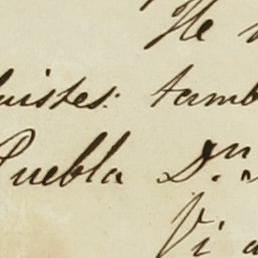 He
uistes: tamb
Puebla D.n
Vi a